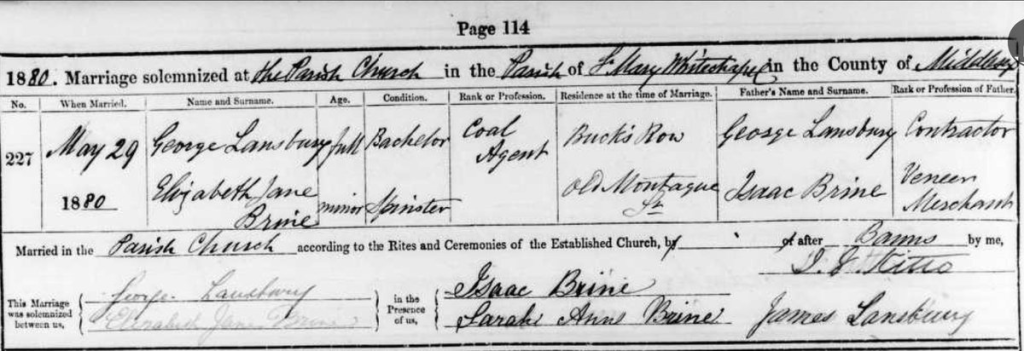 Page 114
1880. Marriage solemnized at the Parish Church in the Parish of St Mary Whitechapel in the County of Middlesex
No. When Married. Name and Surname. Age. Condition. Rank or Profession. Residence at the time of Marriage. Father's Name and Surname. Rank or Profession of Father.
227 May 29 George Lansbury full Bachelor Coal Agent Buck's Row George Lansbury Contractor
1880 Elizabeth Jane Brine minor Spinster Old Montague St Isaac Brine Veneer Merchant
Married in the Parish Church according to the Rites and Ceremonies of the Established Church, by or after Banns by me,
This Marriage was solemnized between us, George Lansbury in the Presence of us, Isaac Brine
Elizabeth Jane Brine Sarah Anne Brine James Lansbury